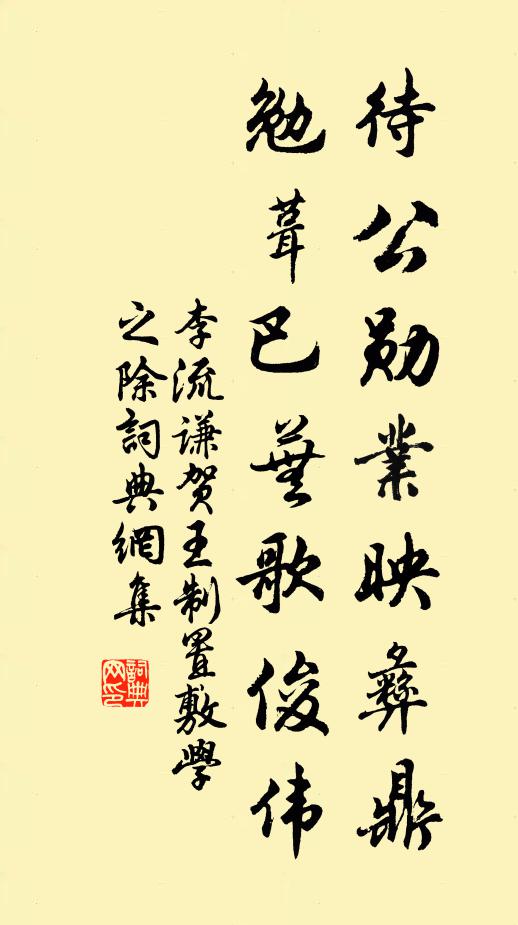 待公勋業映彝鼎
勉葺巴蕪歌俊伟
李流谦贺王制置敷學
之除詞典網集
詞典网印